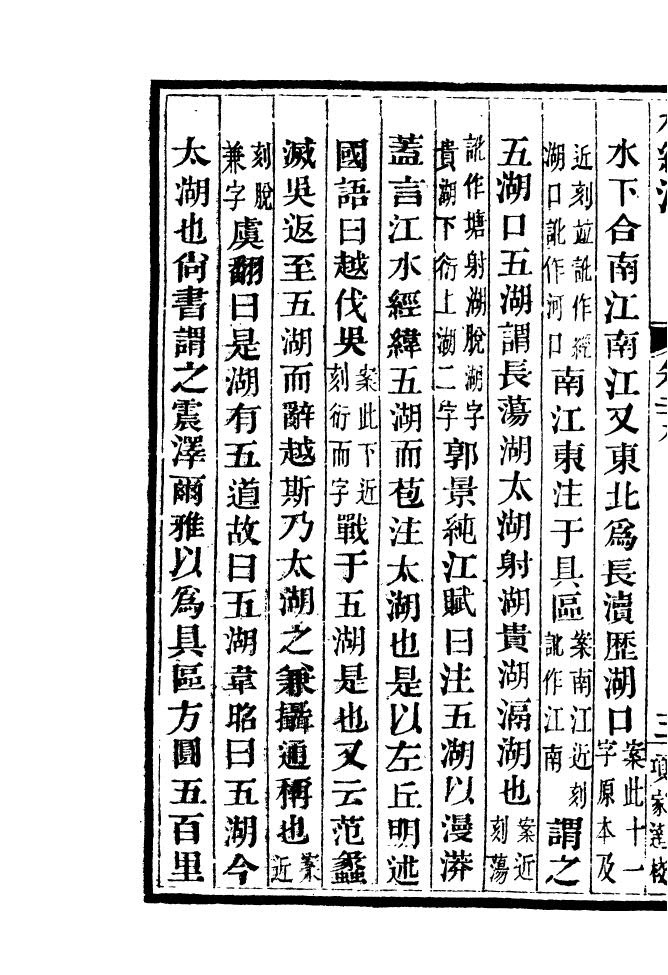 水下合南江南江又東北爲長瀆歷湖口案此十一字原本及
近刻竝訛作經湖口訛作河口南江東注于具區案南江近刻訛作江南謂之
五湖口五湖謂長蕩湖太湖射湖貴湖滆湖也案近刻蕩
訛作塘射湖脫湖字貴湖下衍上湖二字郭景純江賦曰注五湖以漫漭
蓋言江水經緯五湖而苞注太湖也是以左丘明述
國語曰越伐吳案此下近刻衍而字戰于五湖是也又云范蠡
滅吳返至五湖而辭越斯乃太湖之兼攝通稱也案近
刻脫兼字虞翻曰是湖有五道故曰五湖韋昭曰五湖今
太湖也尙書謂之震澤爾雅以爲具區方圓五百里